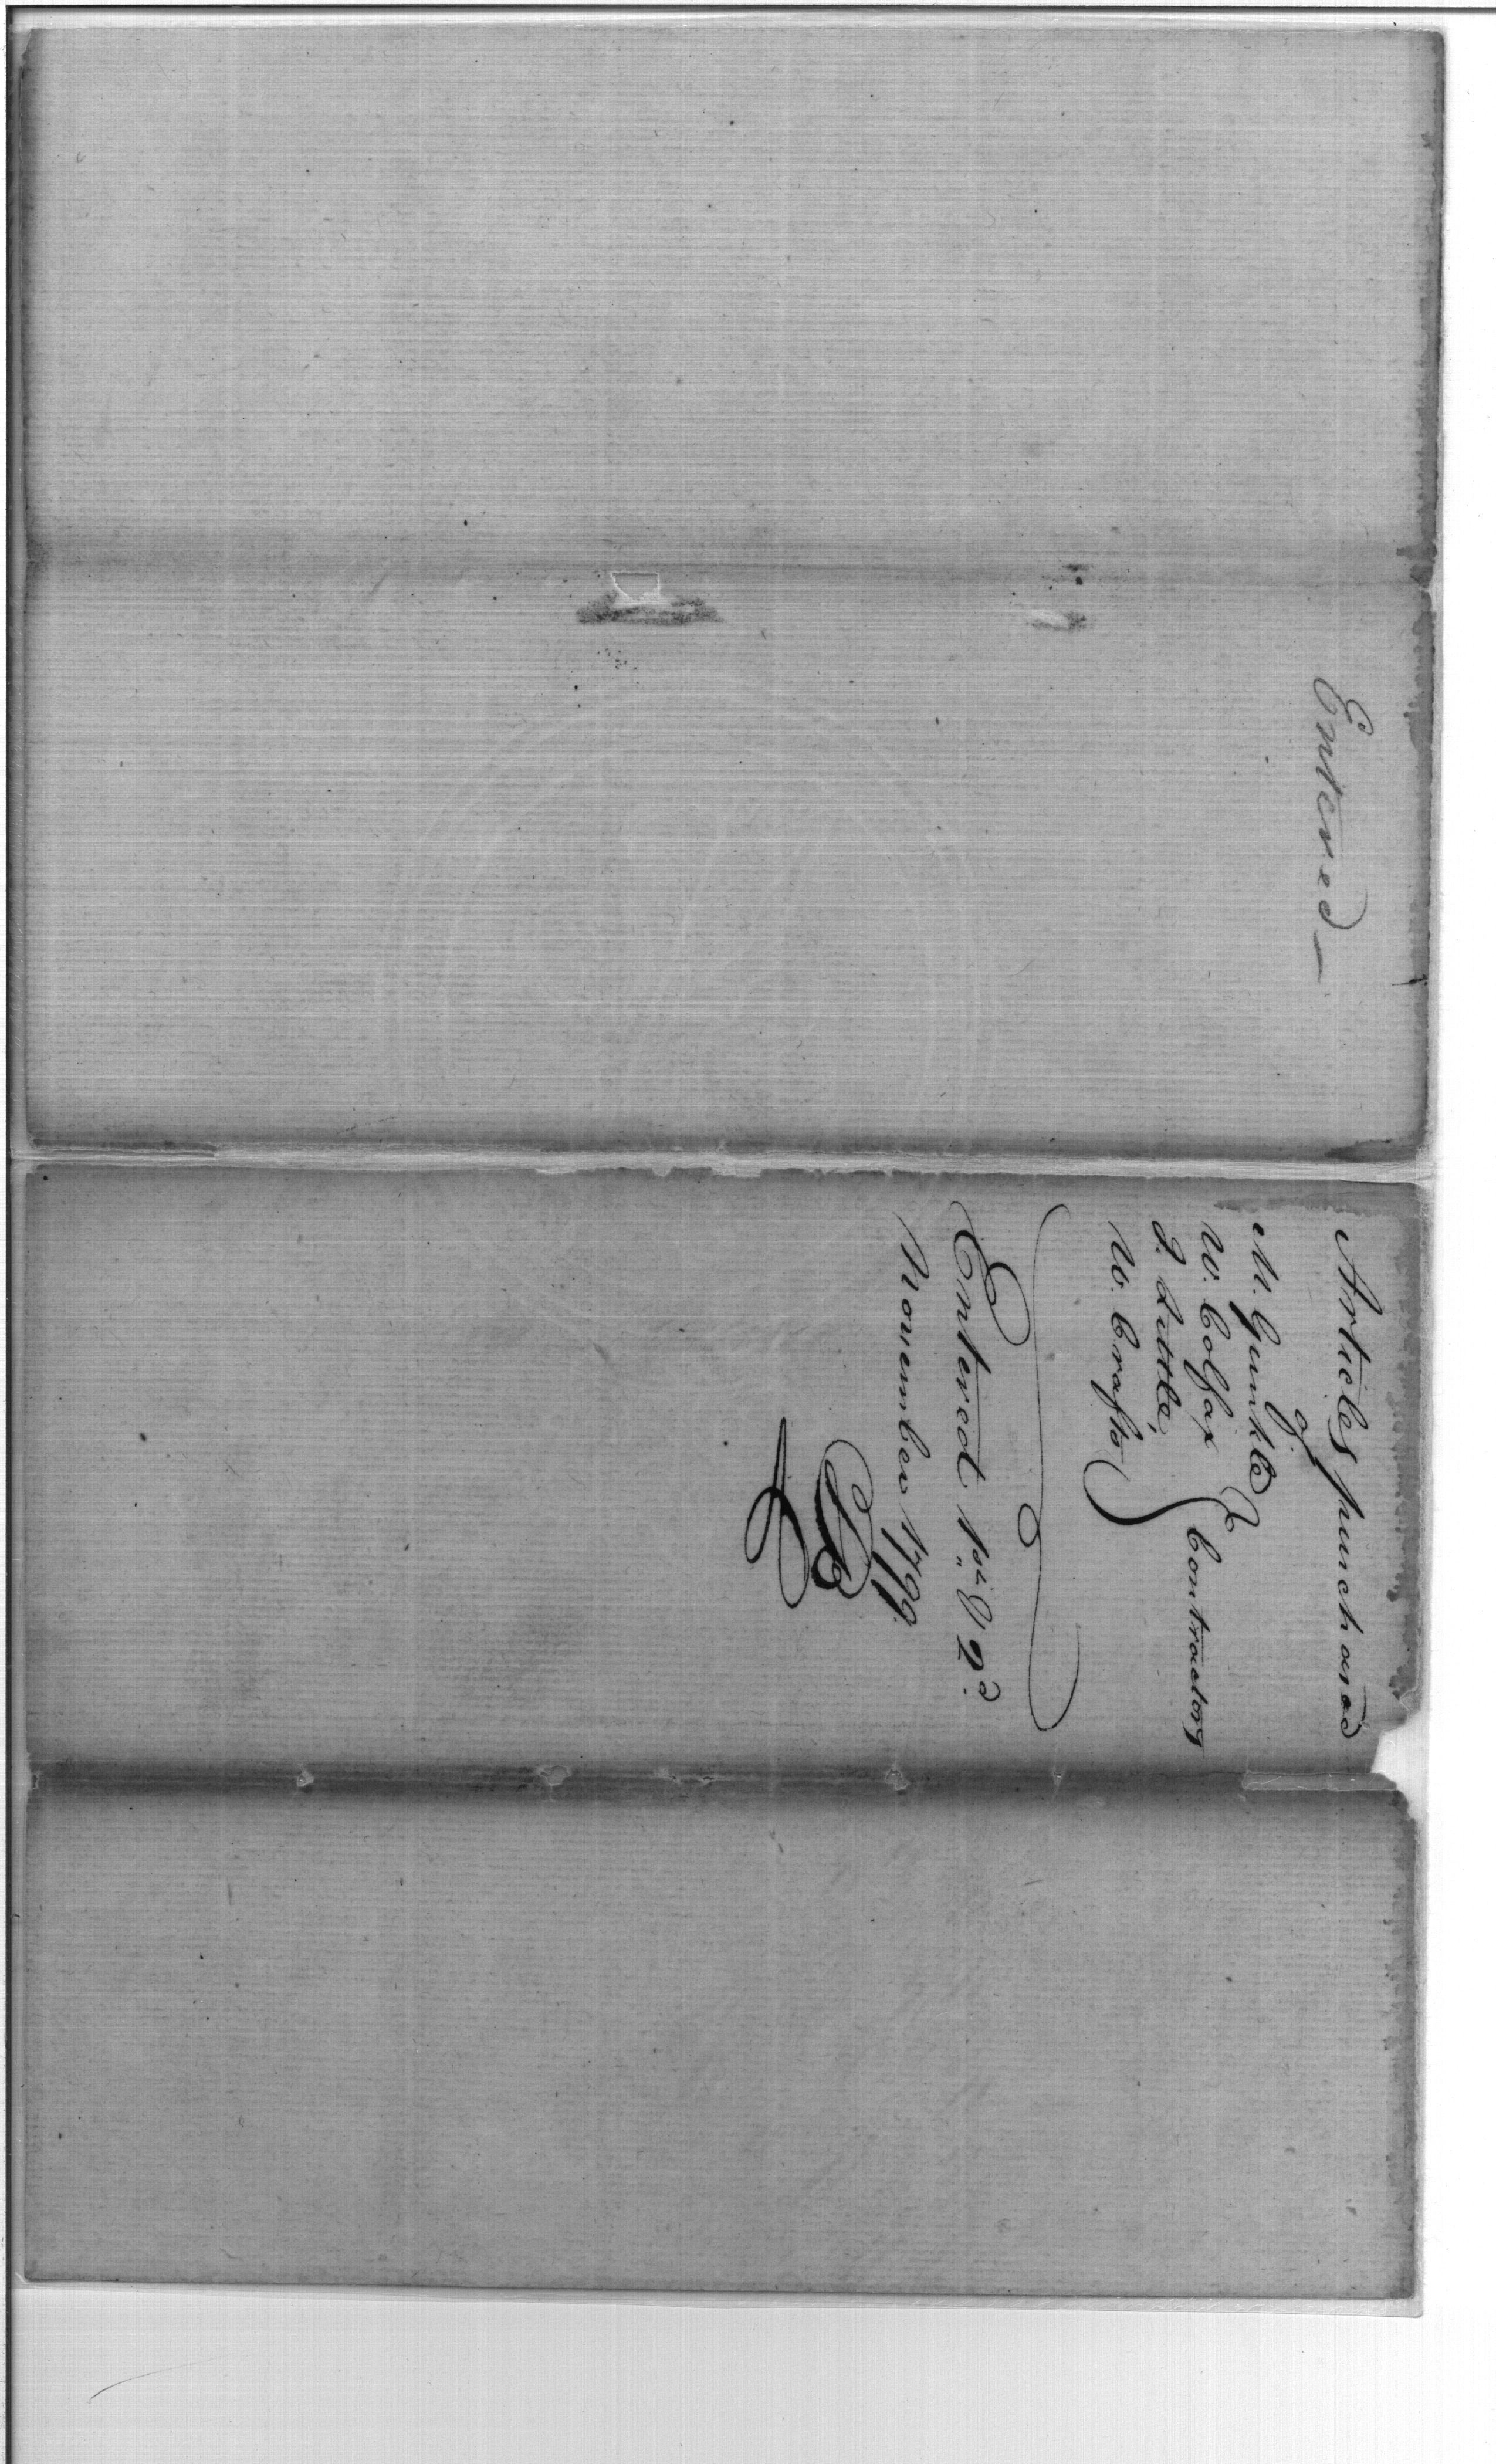 Entered —
Articles purchased
of
M. Gunkle
W. Colfax
I. Little,
W. Crafts
Contractors
Entered 1st & 2d.
November 1799.